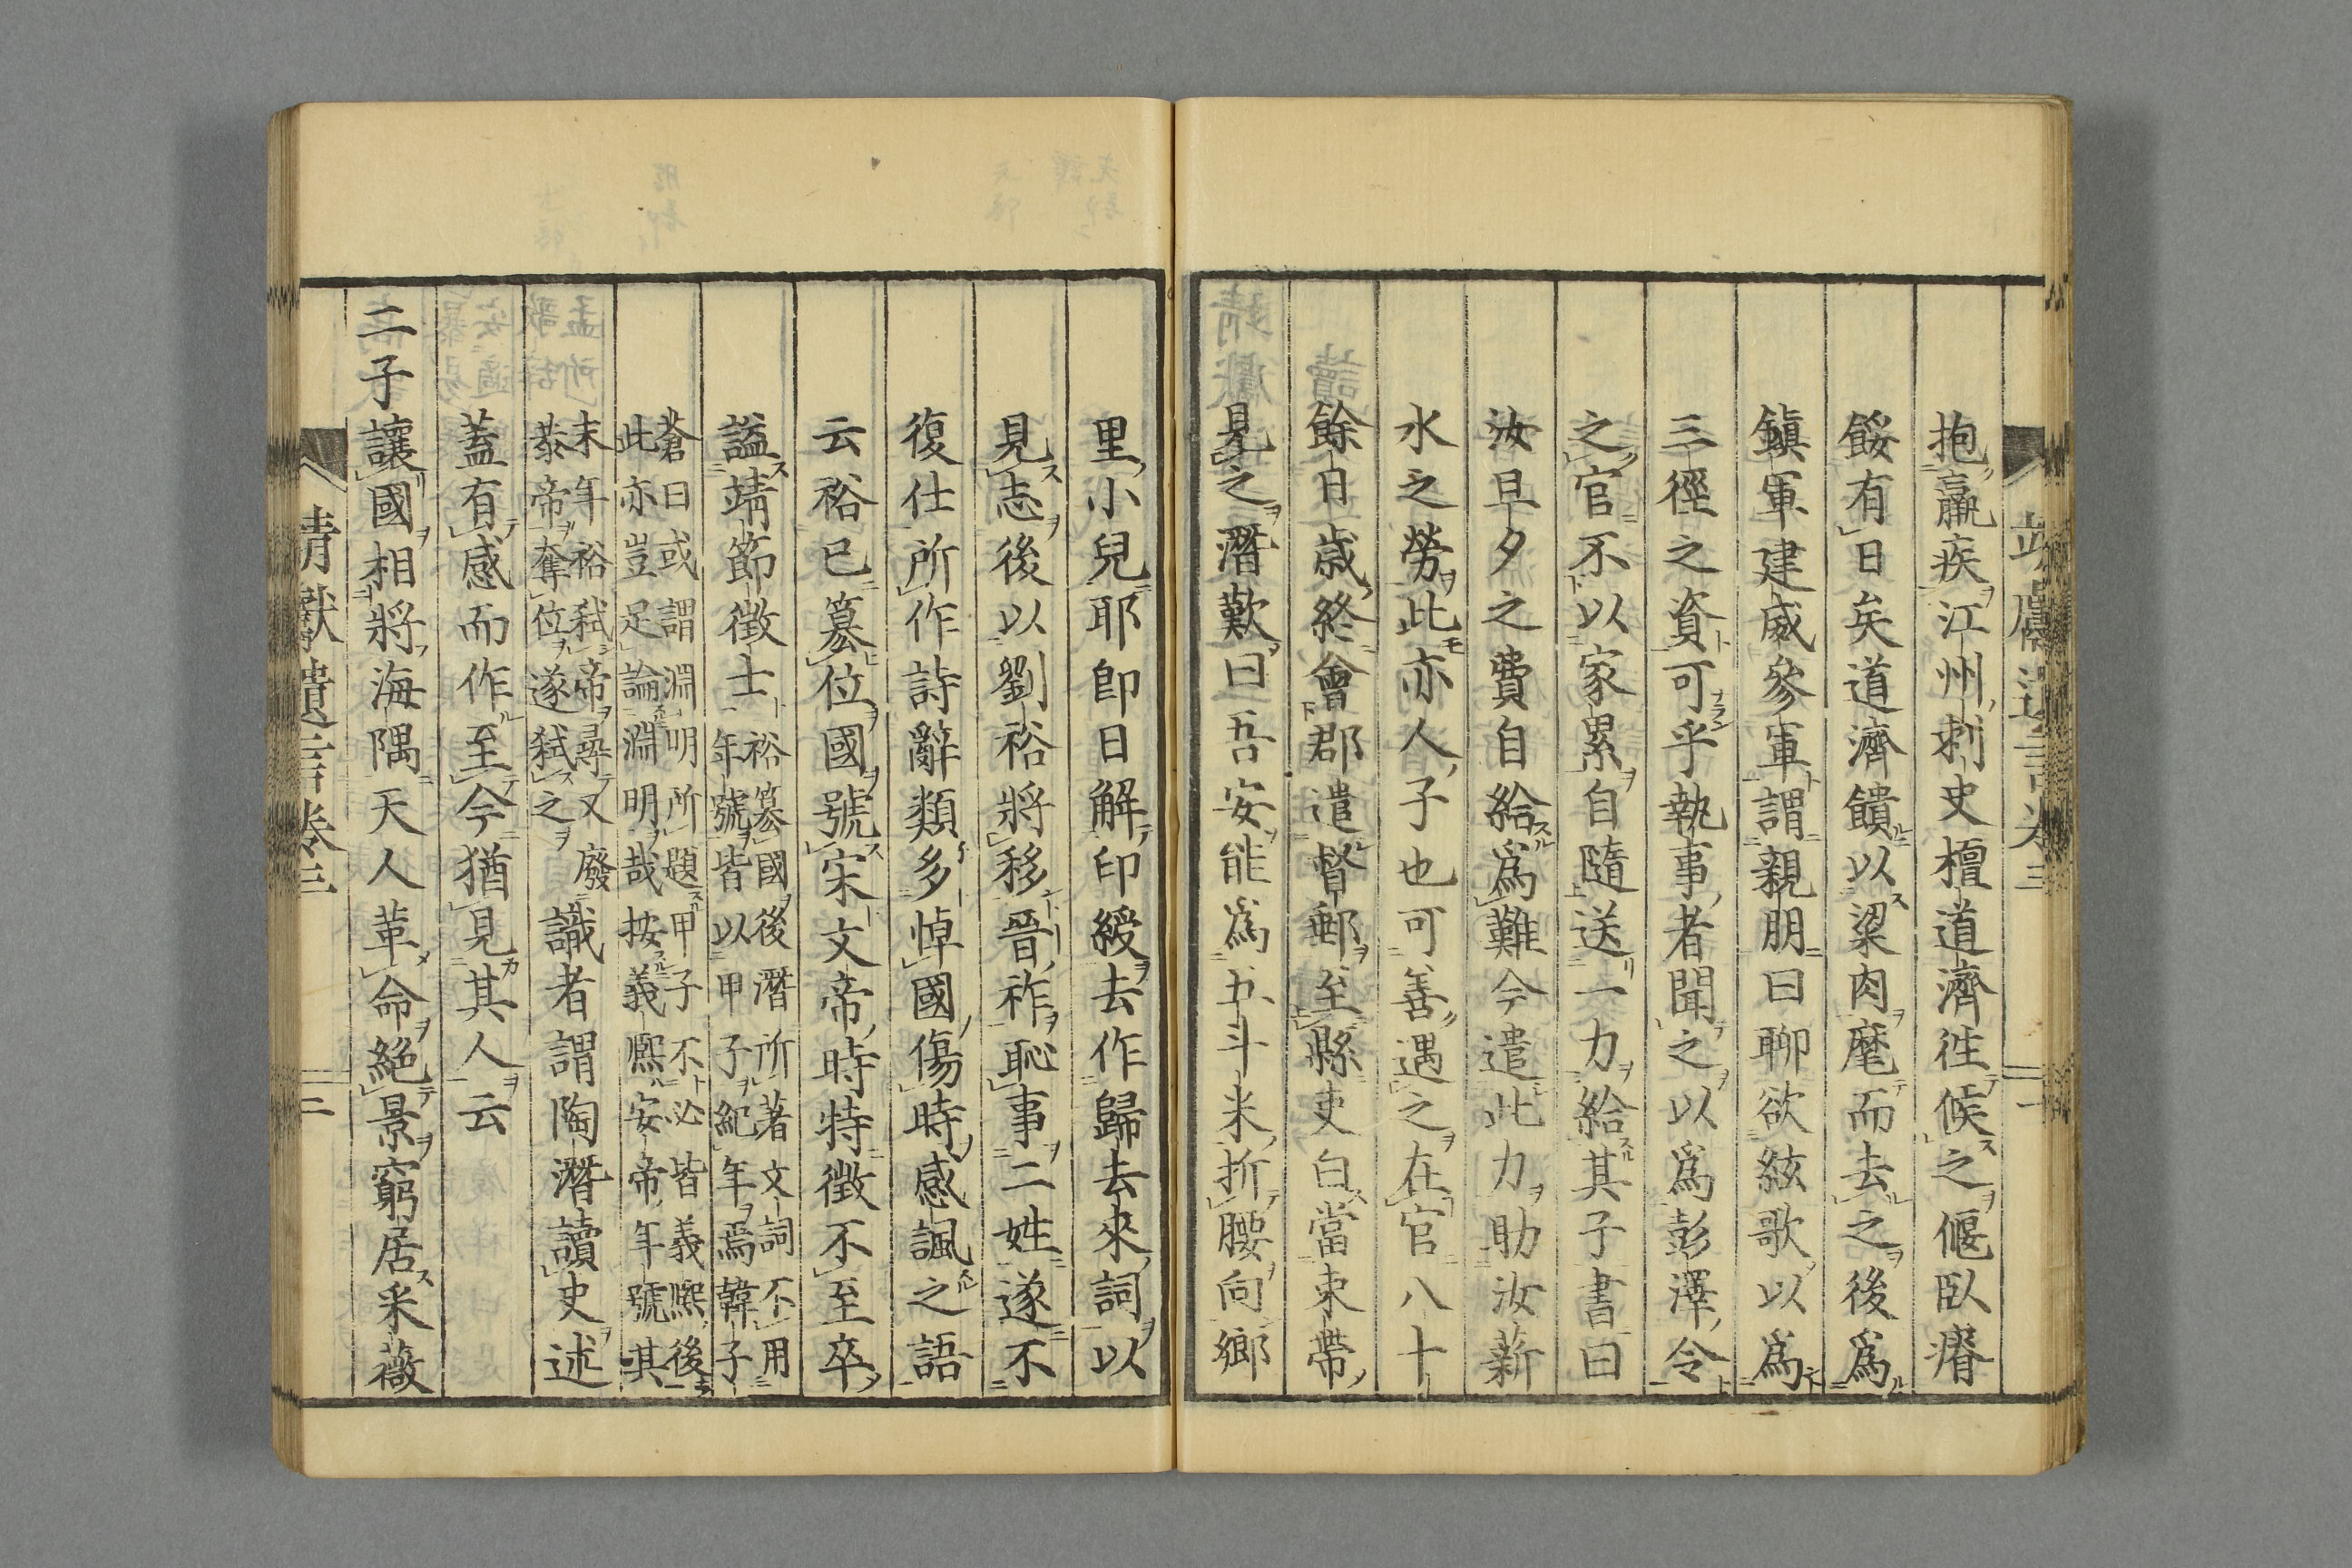 抱羸疾江州刺史檀道濟徃候之偃臥瘠
餒有日矣道濟饋以粱肉麾而去之後爲
鎭軍建威參軍謂親朋曰聊欲絃歌以爲
三徑之資可乎執事者聞之以爲彭澤令
之官不以家累自隨送一力給其子書曰
汝旦夕之費自給爲難今遣此力助汝薪
水之勞此亦人子也可善遇之在官八十
餘日歳終會郡遣督郵至縣吏白當束帶
見之潛歎曰吾安能爲五斗米折腰向鄉
里小兒耶卽日解印綬去作歸去來詞以
見志後以劉裕將移晉祚恥事二姓遂不
復仕所作詩辭類多悼國傷時感諷之語
云裕已簒位國號宋文帝時特徵不至卒
謚靖節徵士裕簒國後潛所著文詞不用
年號皆以甲子紀年焉韓子
蒼曰或謂淵明所題甲子不必皆義熙後
此亦豈足論淵明哉按義熙安帝年號其
末年裕弑帝尋又廢
恭帝奪位遂弑之識者謂陶潛讀史述
蓋有感而作至今猶見其人云
二子讓國相將海隅天人革命絕景窮居采薇
靖獻遺言卷三
二